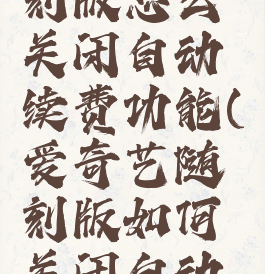 刻版怎么
关闭自动
续费功能(
爱奇艺随
刻版如何
关闭自动